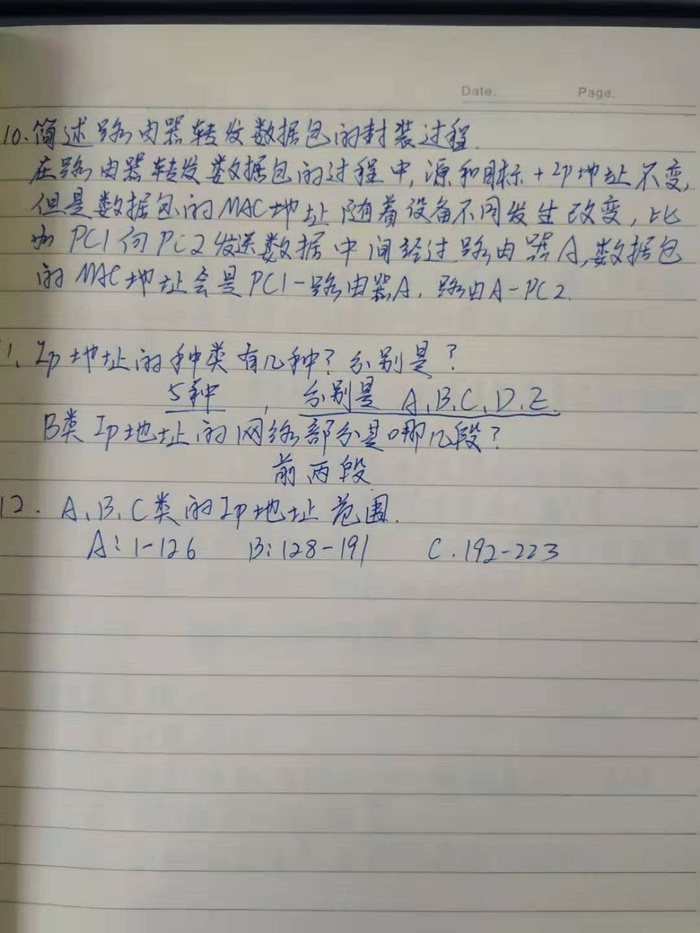 Date. Page.
10. 简述路由器转发数据包的封装过程.
在路由器转发数据包的过程中, 源和目标+Ip地址不变,
但是数据包的MAC地址随着设备不同发生改变, 比
如PC1向PC2发送数据中间经过路由器A, 数据包
的MAC地址会是PC1-路由器A, 路由A-PC2.
1. Ip地址的种类有几种? 分别是?
5种, 分别是 A.B.C.D.E.
B类Ip地址的网络部分是哪几段?
前两段
12. A.B.C类的Ip地址范围.
A: 1-126 B: 128-191 C. 192-223